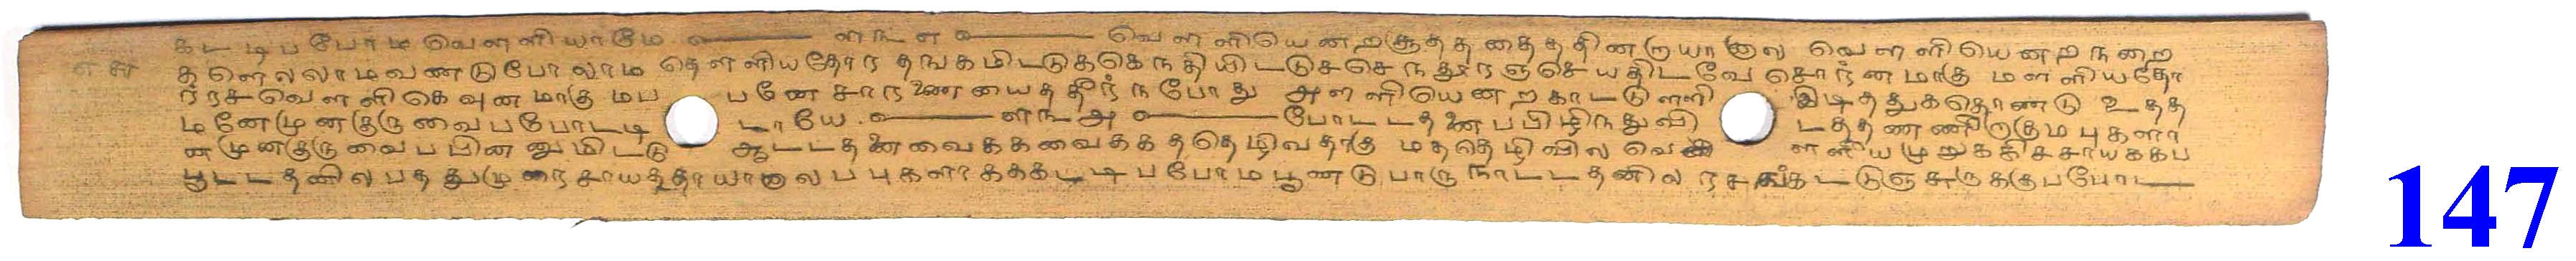 கடடிபபோம வெளளியாமே ௳ ———— ளஙள ௳ ———— வெளளியெனறசூதததைததினருயாலெ வெளளியெனறநறை
எசு தளெலலாமவணடுபோலாம தெளளியதோர தஙகமிடடுககெநதியிடடுசசெநதூரஞசெயதிடவே சொர்னமாகு மளளியதோ
ர்ரசவெளளிகெவுனமாகு மப பனே சாரணையைததீர்நபோது அளளியெனறகாடடுளளி இடிததுகதொணடு உதத
மனேமுனகுருவைபபோடடி டாயே ௳ ———— ளஙஅ ௳ ———— போடடதனைபபிழிநதுவி டததணணிருகுமபுகளா
னமுனகுருவைபபினனுமிடடு ஆடடதனைவைககவைகக ததெழிவதாகு மததெழிவில வெ ளளியமுறுககிசசாயககப
பூடடதனிலபததுமுறைசாயததாயாலெபபுகளாகககடடிபபோமபூணடு பாருநாடடதனில ரசஙகடடுஞசுருககுபபோட
147